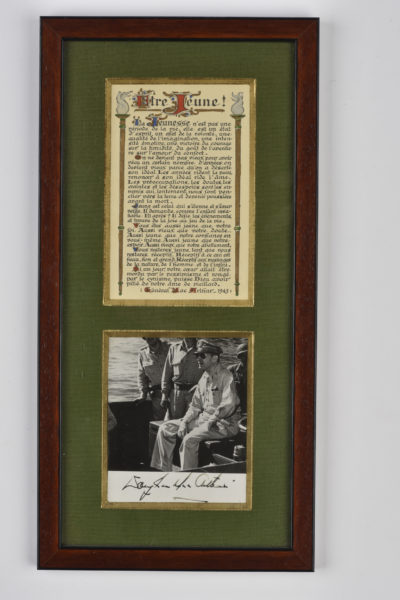 Être Jeune!
La Jeunesse n'est pas une
période de la vie, elle est un état
d'esprit, un effet de la volonté, une
qualité de l'imagination, une inten-
sité émotive, une victoire du courage
sur la timidité, du goût de l'aventu-
re sur l'amour du confort.
On ne devient pas vieux pour avoir
vécu un certain nombre d'années: on
devient vieux parce qu'on a déserté
son idéal. Les années rident la peau,
renoncer à son idéal ride l'âme.
Les préoccupations, les doutes, les
craintes et les désespoirs sont les en-
nemis qui, lentement, nous font pen-
cher vers la terre et devenir poussière
avant la mort.
Jeune est celui qui s'étonne et s'émer-
veille. Il demande, comme l'enfant insa-
tiable: Et après? Il défie les événements,
et trouve de la joie au jeu de la vie.
Vous êtes aussi jeune que votre
foi. Aussi vieux que votre doute.
Aussi jeune que votre confiance en
vous-même. Aussi jeune que votre
espoir. Aussi vieux que votre abattement.
Vous resterez jeune tant que vous
resterez réceptif. Réceptif à ce qui est
beau, bon et grand. Réceptif aux messages
de la nature, de l'homme et de l'infini.
Si un jour, votre cœur allait être
mordu par le pessimisme et rongé
par le cynisme, puisse Dieu avoir
pitié de votre âme de vieillard.
(Général Mac Arthur, 1945)
Douglas MacArthur